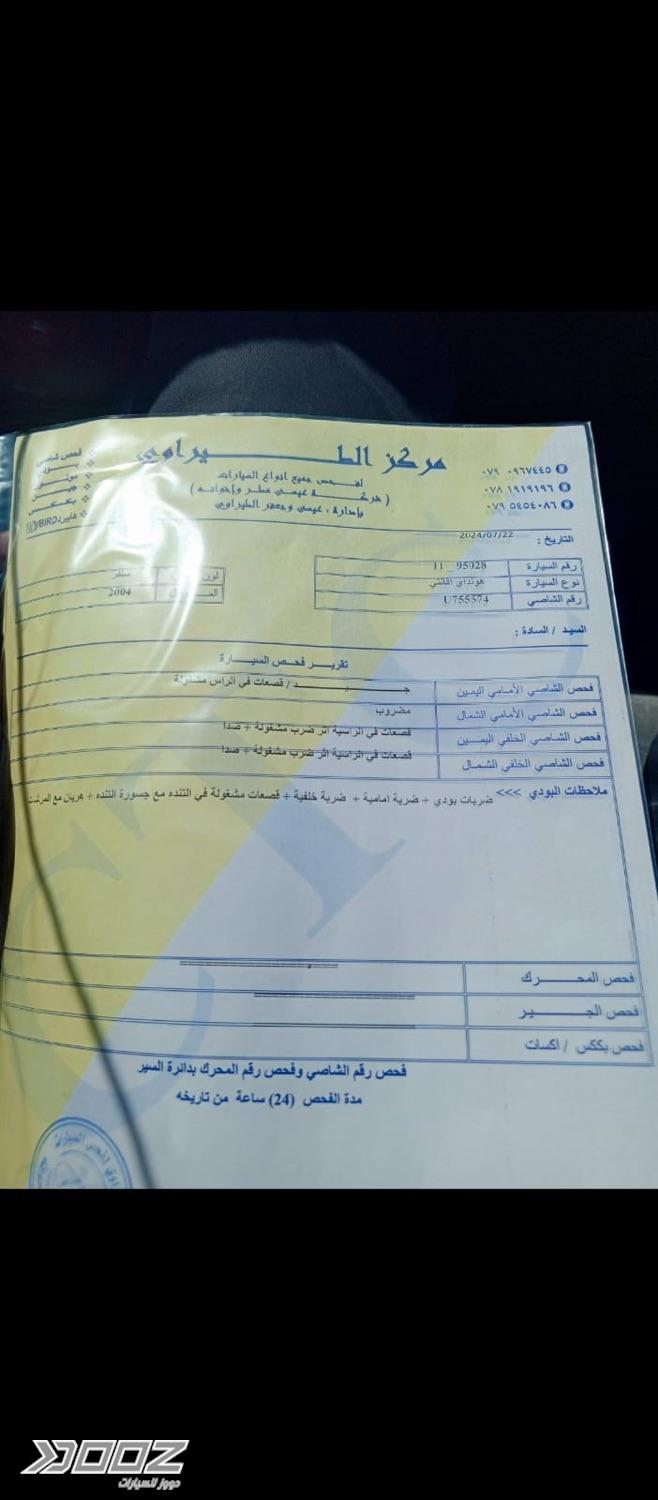 مركز الطيراوي
لفحص جميع انواع السيارات
( شركة عيسى مطر واخوانه )
بإدارة : عيسى وجعفر الطيراوي
٠٧٩ ٠٩٦٧٤٤٥
٠٧٨ ١٩١٩١٩٦
٠٧٩ ٥٤٥٤٠٨٦
فحص شاصي
بودي
موتور
جير
بككس
هايبرد
التاريخ : 2024/07/22
رقم السيارة 11_95028
نوع السيارة هونداي افانتي
رقم الشاصي U755574
لون
سلفر
2004
السيد / السادة :
تقرير فحص السيارة
فحص الشاصي الأمامي اليمين جيد / قصعات في الراس مشغولة
فحص الشاصي الأمامي الشمال مضروب
فحص الشاصي الخلفي اليمين قصعات في الراسية اثر ضرب مشغولة + صدا
فحص الشاصي الخلفي الشمال قصعات في الراسية اثر ضرب مشغولة + صدا
ملاحظات البودي >>> ضربات بودي + ضربة امامية + ضربة خلفية + قصعات مشغولة في التنده مع جسورة التنده + هريان مع المرشات
فحص المحرك
فحص الجير
فحص بككس / اكسات
فحص رقم الشاصي وفحص رقم المحرك بدائرة السير
مدة الفحص (24) ساعة من تاريخه
DOOZ
دووز للسيارات